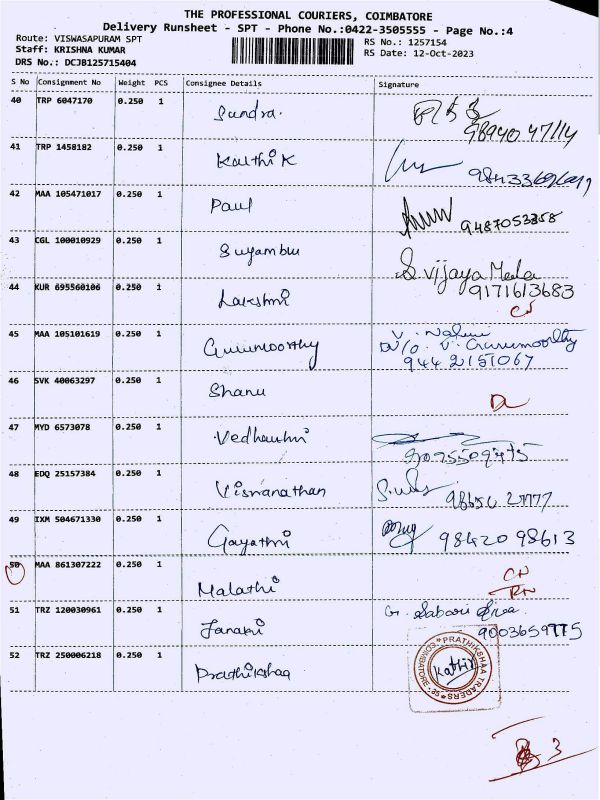 THE PROFESSIONAL COURIERS, COIMBATORE
Delivery Runsheet - SPT - Phone No.:0422-3505555 - Page No.:4
Route: VISWASAPURAM SPT
RS No.: 1257154
Staff: KRISHNA KUMAR
RS Date: 12-Oct-2023
DRS No.: DCJB125715404
S No Consignment No Weight PCS Consignee Details Signature
40 TRP 6047170 0.250 1 Sundra.
98940 47114
41 TRP 1458182 0.250 1 Kalthi K
42 MAA 105471017 0.250 1 Paul
9487053358
43 CGL 100010929 0.250 1 Suyambu
S. Vijaya Mala
9171613683
44 KUR 695560106 0.250 1 Lakshmi
CN
45 MAA 105101619 0.250 1 Gurumoorthy
V. Gurumoorthy
944 2151067
46 SVK 40063297 0.250 1 Shanu
DL
47 MYD 6573078 0.250 1 Vedhanthi
48 EDQ 25157384 0.250 1 Visvanathan
49 IXM 504671330 0.250 1 Gayathri
98420 98613
50 MAA 861307222 0.250 1 Malathi
CN
RN
51 TRZ 120030961 0.250 1 Janaki
G. Sabari
9003659775
52 TRZ 250006218 0.250 1 Prathikshaa
PRATHIKSHAA TRADERS
COIMBATORE - 35
3